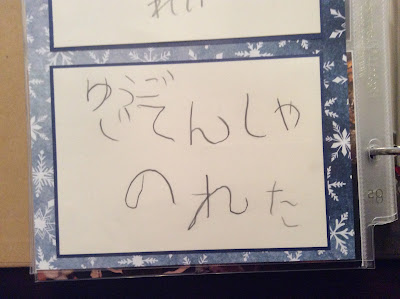 ゆうご
じてんしゃ
のれた